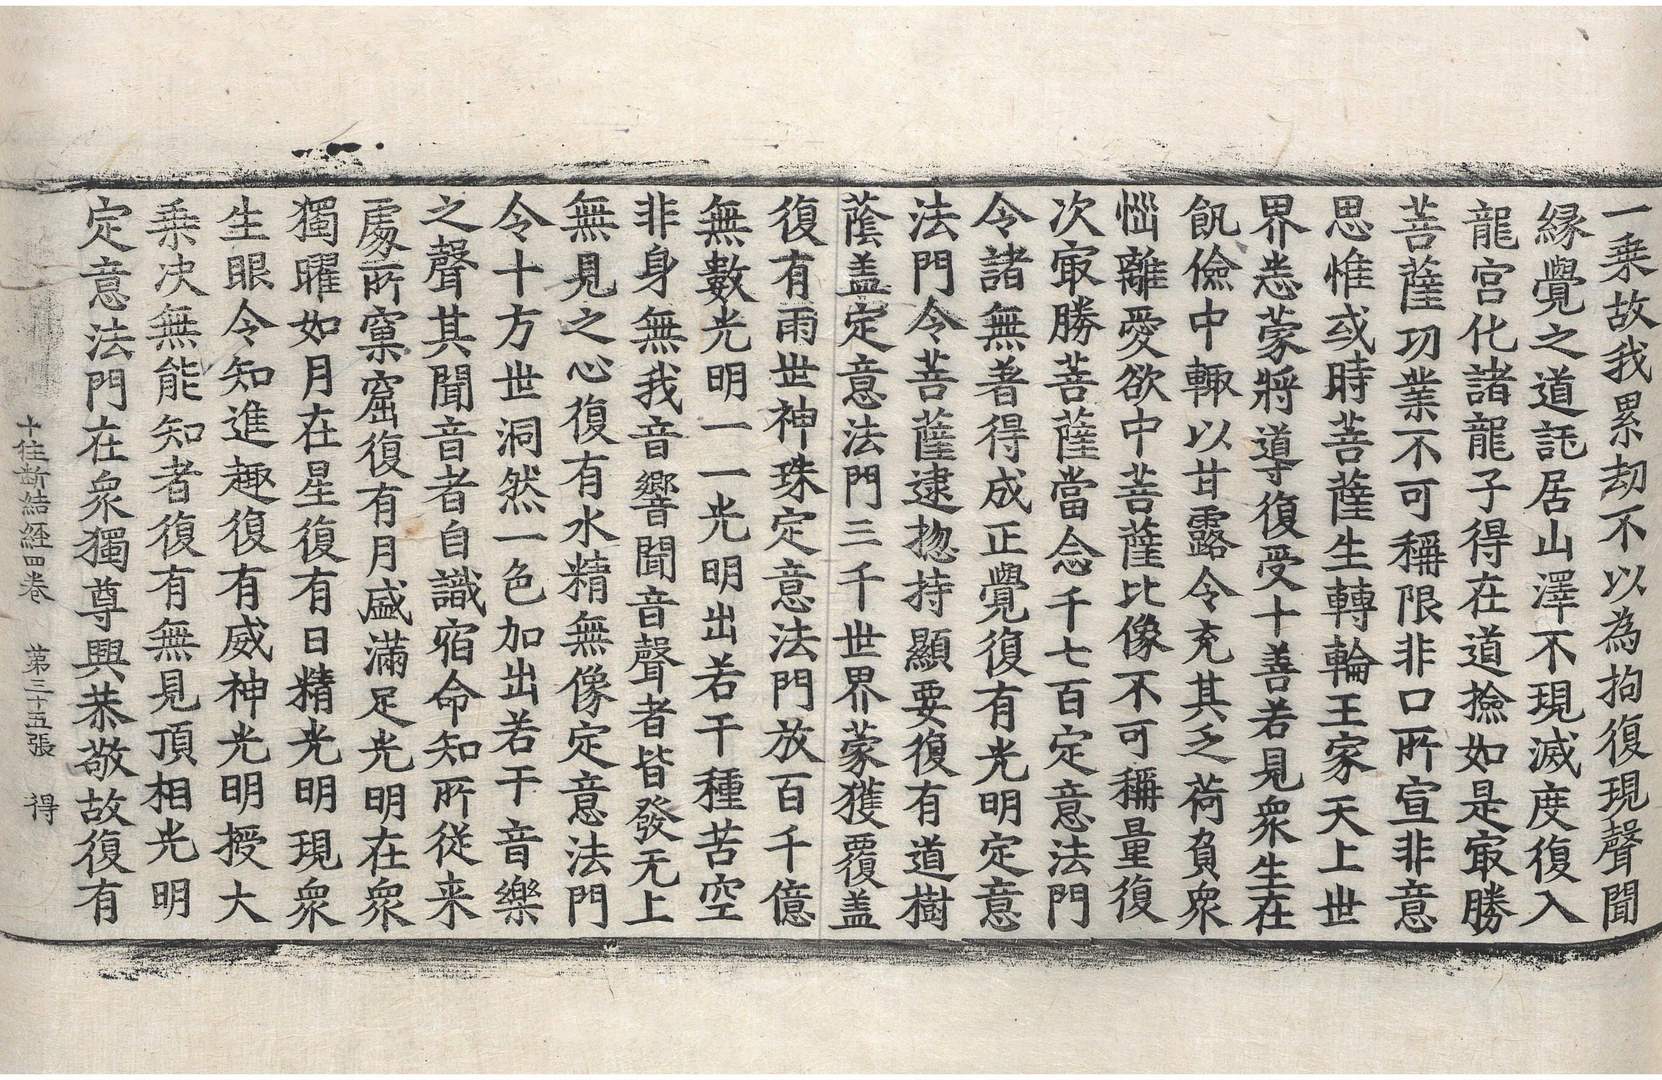 一乗故我累劫不以為拘復現聲聞
縁覺之道託居山澤不現滅度復入
龍宮化諸龍子得在道撿如是㝡勝
菩薩功業不可稱限非口所宣非意
思惟或時菩薩生轉輪王家天上世
界恙蒙將導復受十善若見衆生在
飢儉中輙以甘露令充其乏荷負衆
惱離愛欲中菩薩比像不可稱量復
次㝡勝菩薩當念千七百定意法門
令諸無著得成正覺復有光明定意
法門令菩薩逮揔持顯要復有道樹
蔭盖定意法門三千世界蒙獲覆盖
復有雨世神珠定意法門放百千億
無數光明一一光明出若干種苦空
非身無我音響聞音聲者皆發无上
無見之心復有水精無像定意法門
令十方世洞然一色加出若干音樂
之聲其聞音者自識宿命知所從来
處所窠窟復有月盛滿足光明在衆
獨曜如月在星復有日精光明現衆
生眼令知進趣復有威神光明授大
乗决無能知者復有無見頂相光明
定意法門在衆獨尊興恭敬故復有
十住斷結経四巻 第三十五張 得